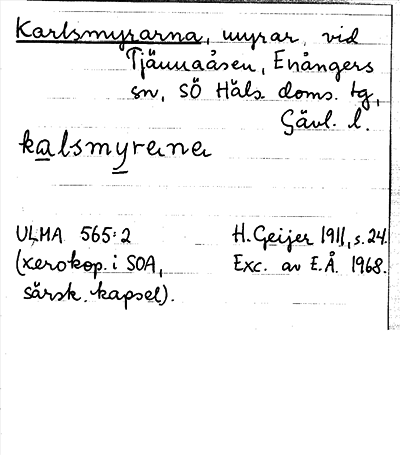 Karlsmyrarna, myrar, vid
Tjännaåsen, Enångers
sn, SÖ Häls. doms. tg,
Gävl. l.
kalsmyrana
ULMA 565:2
(xerokop. i SOA,
särsk. kapsel).
H. Geijer 1911, s. 24.
Exc. av E.Å. 1968.